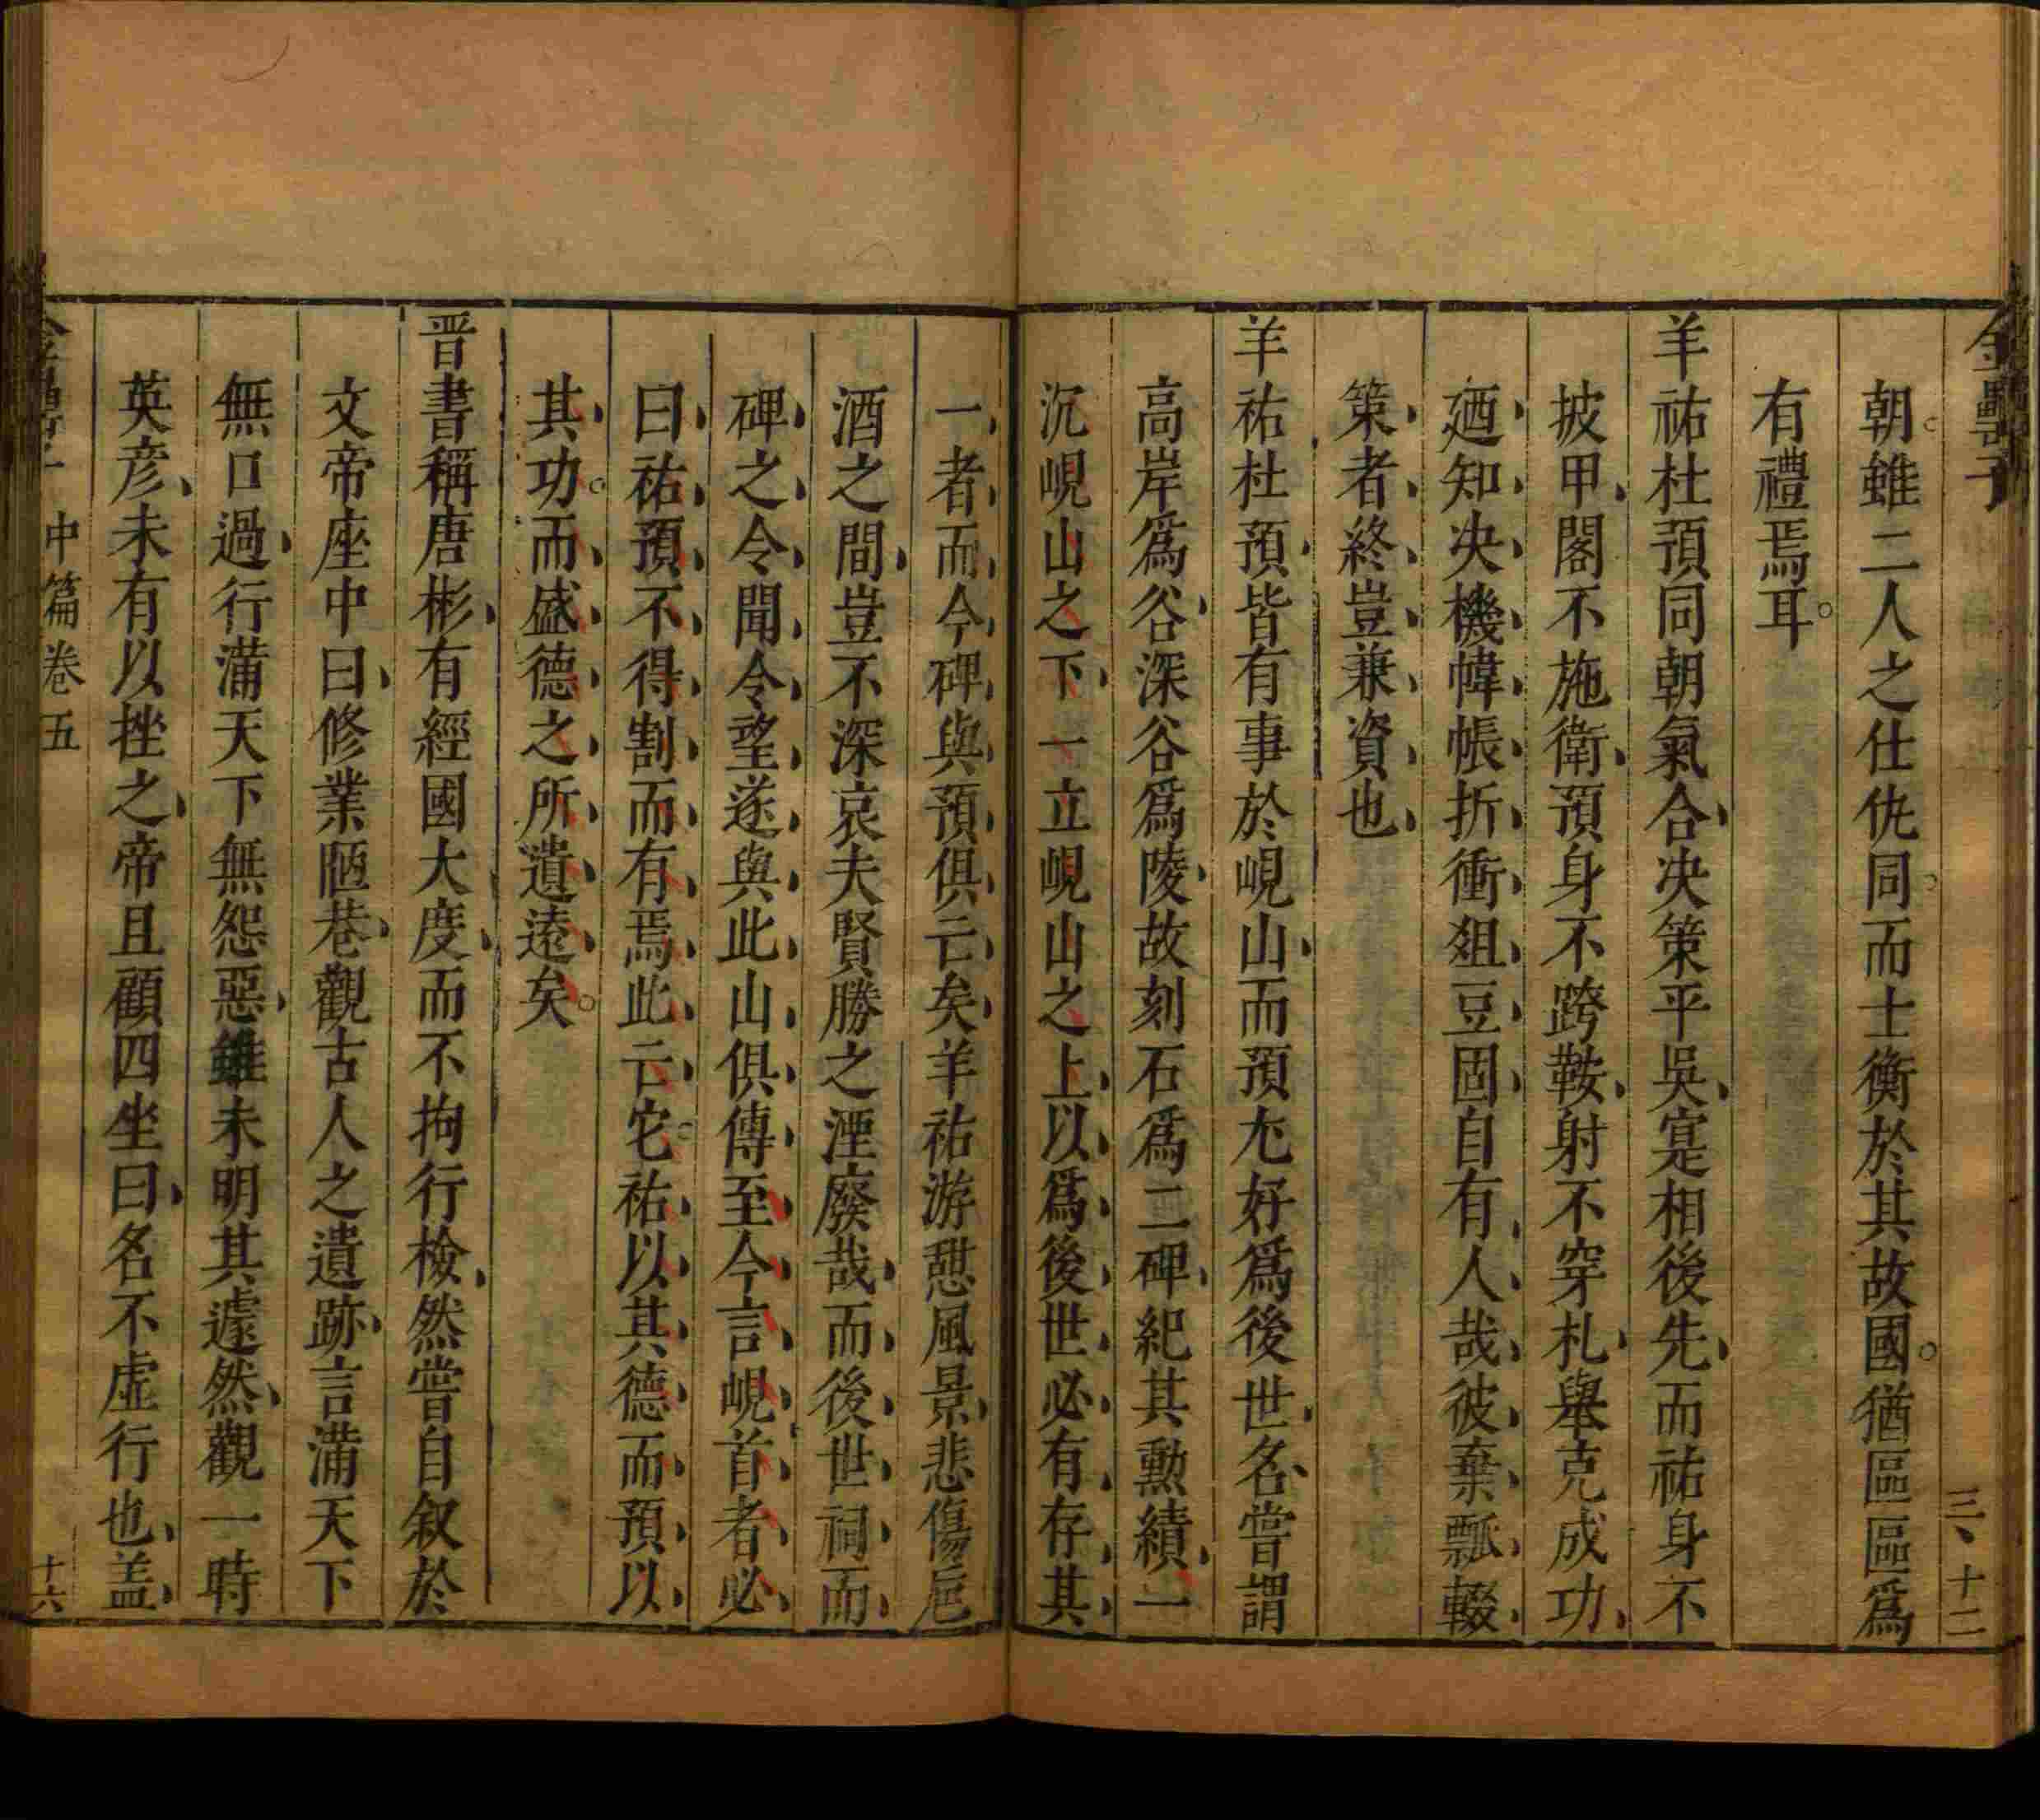 金罍子
三、十二
朝。雖二人之仕仇同。而士衡於其故國。猶區區爲
有禮焉耳。
羊祐杜預同朝氣合、决策平吳、寔相後先、而祐身不
披甲、閣不施衛、預身不跨鞍、射不穿札、舉克成功、
廼、知、决、機、幃、帳、折、衝、俎、豆、固、自有、人、哉、彼、棄、瓢、輟、
策、者、終、豈、兼、資、也、
羊祐杜預、皆有事於峴山、而預尤好爲後世、名、嘗謂
高岸爲谷、深谷爲陵、故刻石爲二碑、紀其勲績、一
沉峴山之下、一立峴山之上、以、爲、後、世、必、有、存、其、
一、者、而、今、碑、與、預、俱、亡、矣、羊祐游憩風景、悲傷巵
酒之間、豈不深哀夫賢勝之湮廢哉、而、後、世、祠、而、
碑、之、令、聞、令、望、遂、與、此、山、俱、傳、至、今、言、峴、首、者、必、
曰、祐、預、不、得、割、而、有、焉、此、亡、它。祐、以、其、德、而、預、以、
其、功。而、盛、德、之、所、遺、遠、矣。
晋書稱唐彬、有經國大度、而不拘行檢、然嘗自叙於
文帝座中曰、修業陋巷、觀古人之遺跡、言滿天下
無口過、行滿天下無怨惡、雖未明其遽然、觀一時
英彦、未有以挫之、帝且顧四坐曰、名不虛行也、盖、
中篇卷五
十六